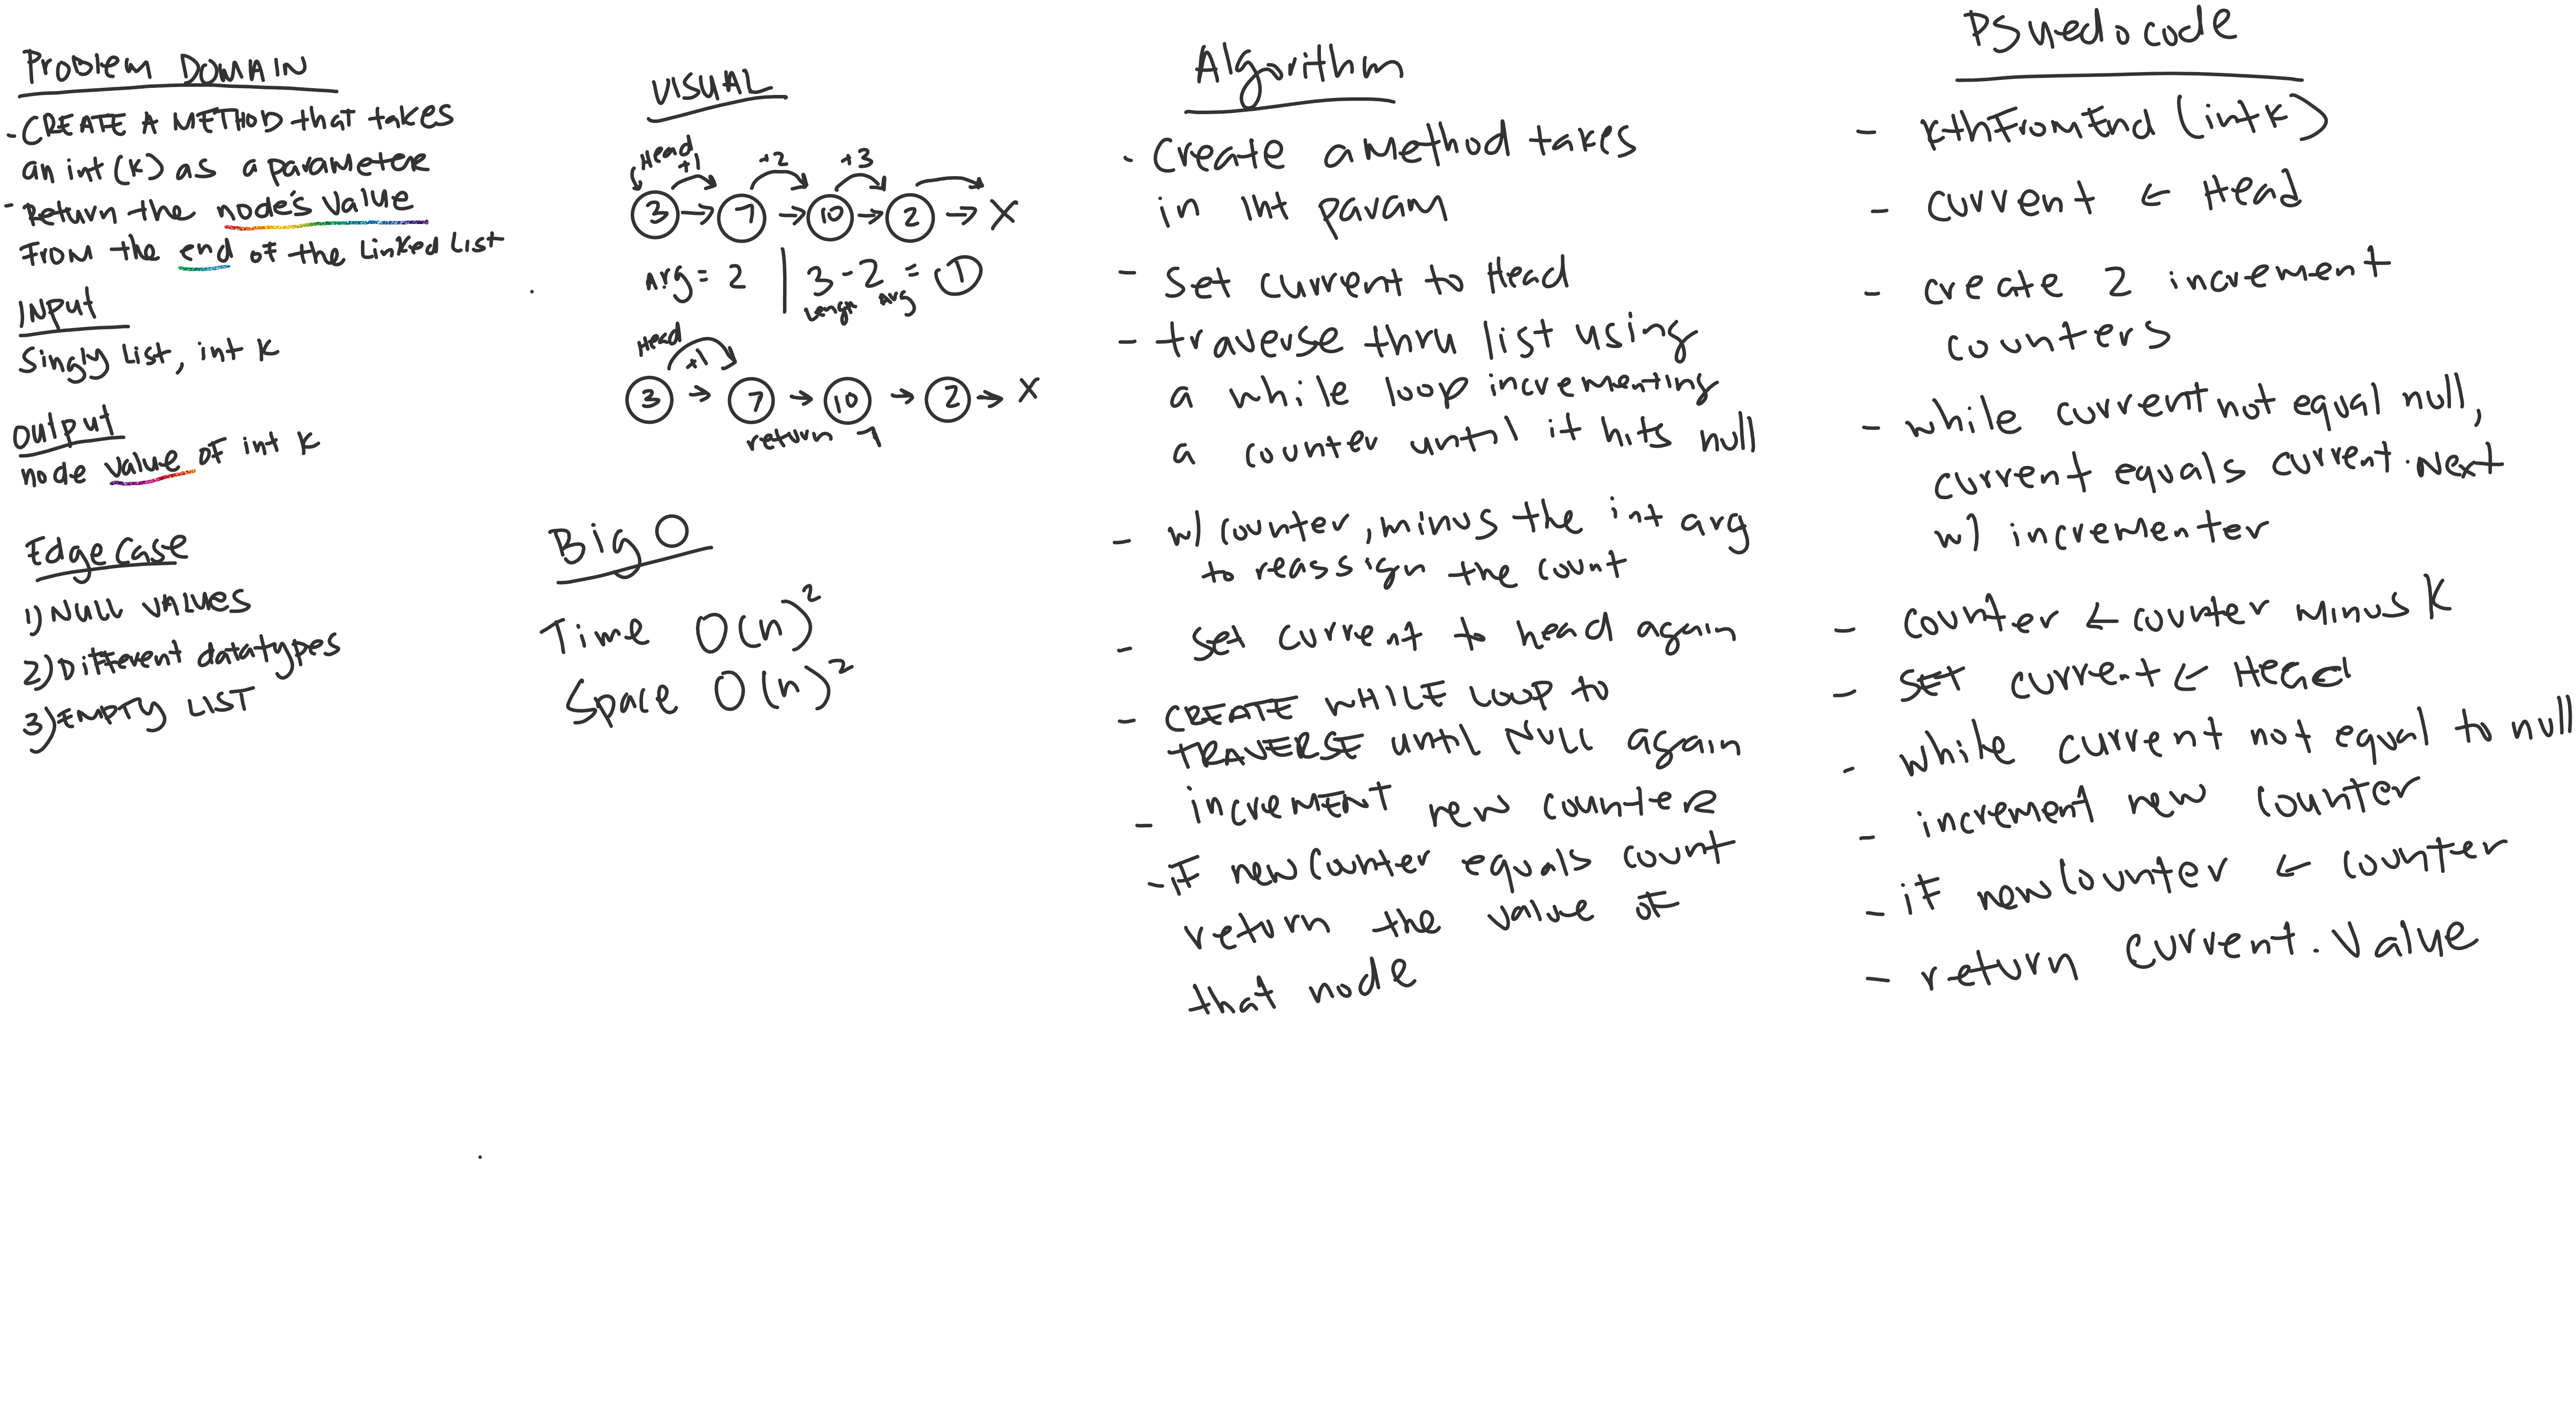 Problem DOMAIN
- CREATE A METHOD that takes
an int (k) as a parameter
- Return the node's value
From the end of the Linked List
INPUT
Singly List, int K
OUTPUT
node value of int K
Edge Case
1) NULL VALUES
2) Different datatypes
3) EMPTY LIST
VISUAL
Head
+1 +2 +3
3 → 7 → 10 → 2 → X
Arg = 2 | 3 - 2 = 1
Length Arg
Head
+1
3 → 7 → 10 → 2 → X
return 7
Big O
Time O(n)²
Space O(n)²
Algorithm
- Create a method takes
in Int param
- Set current to Head
- traverse thru list using
a while loop incrementing
a counter until it hits null
- w/ counter, minus the int arg
to reassign the count
- Set current to head again
- CREATE WHILE LOOP to
TRAVERSE until NULL again
- increment new counter
- if newCounter equals count
return the value of
that node
PSuedocode
- kthFromEnd (int k)
- current ← Head
- create 2 increment
counters
- while current not equal null,
current equals current.Next
w/ incrementer
- counter ← counter minus K
- SET current ← Head
- while current not equal to null
- increment new counter
- if newCounter ← counter
- return current.Value